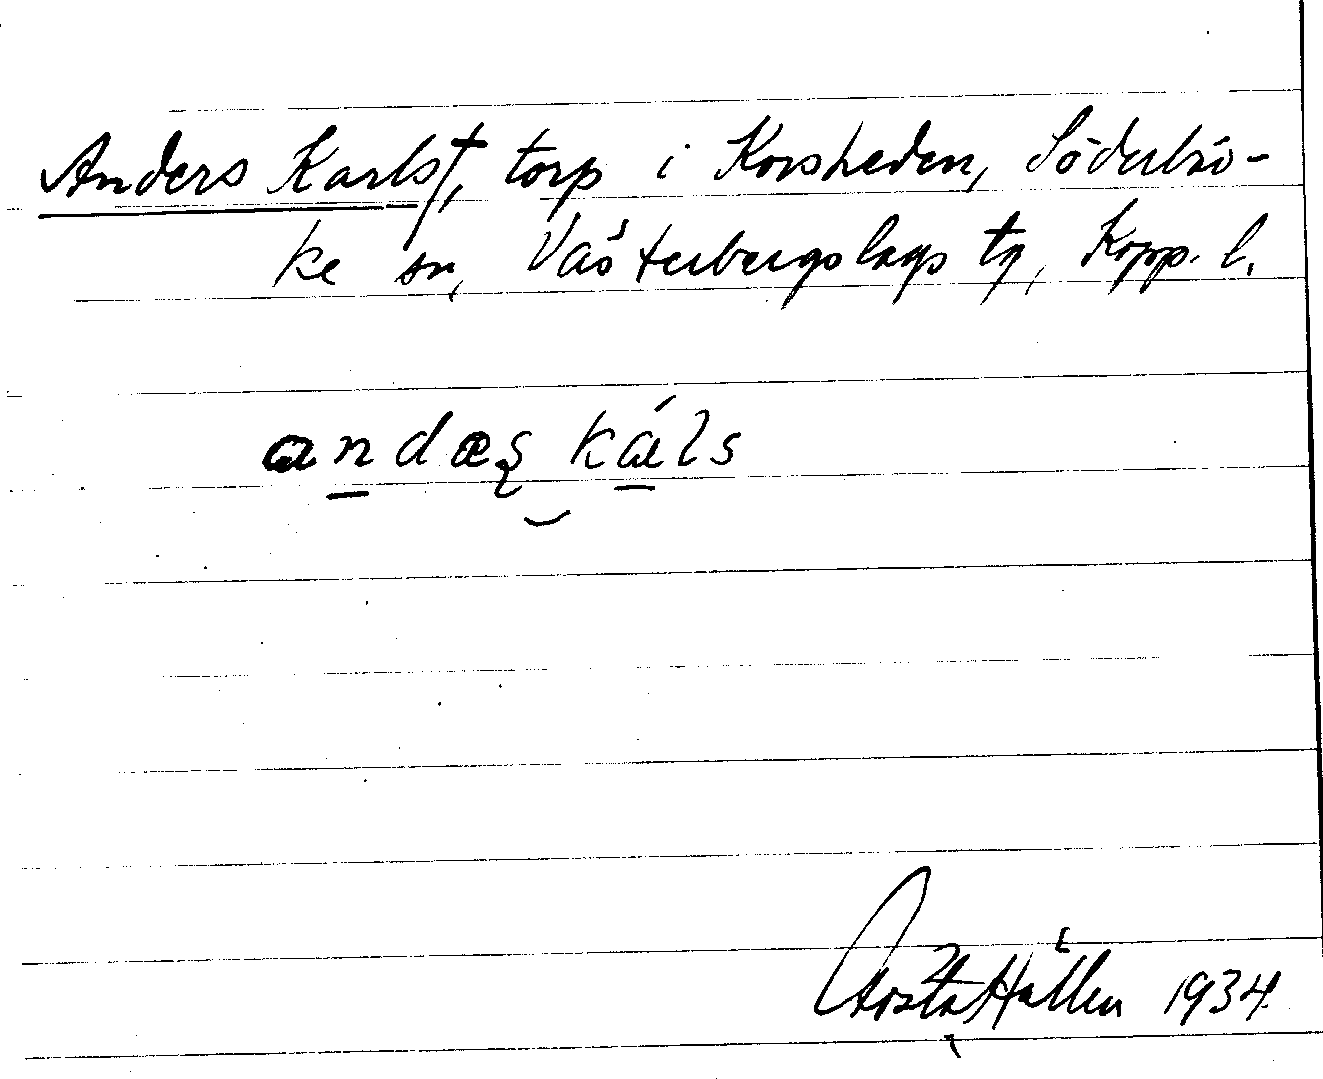 Anders Karls†, torp i Korsheden, Söderbär-
ke sn, Västerbergslags tg, Kopp. l.
andæs káls
Gösta Hallén 1934.